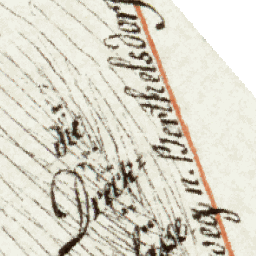 die
Dreck=
weg n. Berthelsdorf